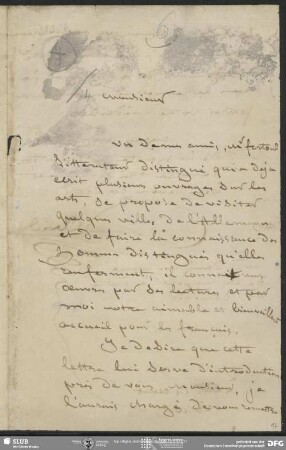 Monsieur
un de mes amis, Mr fortoul
littérateur distingué qui a déja
écrit plusieurs ouvrages sur les
arts, se propose de visiter
quelques villes de l'Allemagne
et de faire la connaissance des
hommes distingués qu'elles
renferment, il connait vos
œuvres par ses lectures et par
moi votre aimable et bienveillant
accueil pour les français.
Je desire que cette
lettre lui serve d'introduction
près de vous, monsieur, je
l'aurais chargé, de vous remettre
SLUB
DFG